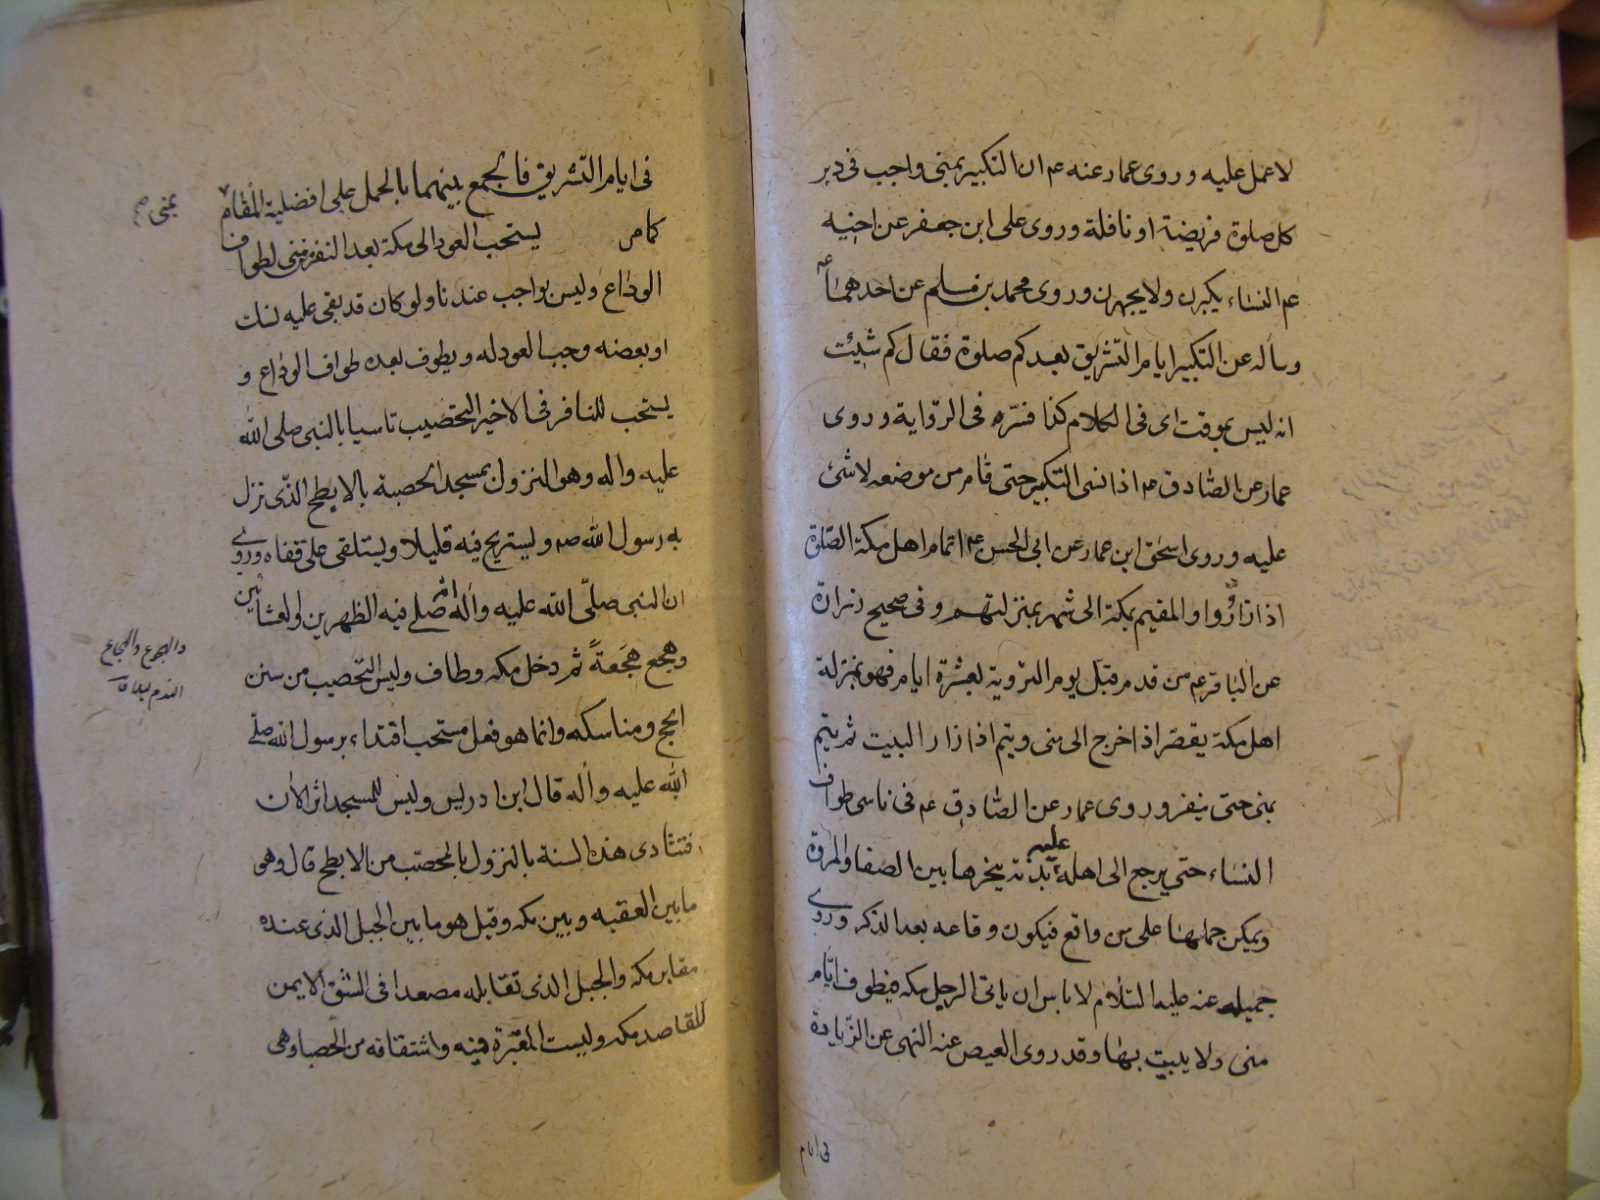 لا عمل عليه وروى عمار عنه عم ان التكبير بمنى واجب فى دبر
كل صلوة فريضة او نافلة وروى على ابن جعفر عن اخيه
عم النساء يكبرن ولا يجهرن وروى محمد بن مسلم عن احدهما عم
وساله عن التكبير ايام التشريق بعد كم صلوة فقال كم شئت
انه ليس بموقت اى فى الكلام كذا فسّره فى الرواية وروى
عمار عن الصّادق عم اذا نسى التكبير حتى قام من موضعه لا شئ
عليه وروى اسحق ابن عمار عن ابى الحسن عم اتمام اهل مكة الصّلوة
اذا زاروا والمقيم بمكة الى شهر بمنزلتهم وفى صحيح زرارة
عن الباقر عم من قدم قبل يوم التروية بعشرة ايام فهو بمنزلة
اهل مكة يقصّر اذا خرج الى منى ويتم اذا زار البيت ثم يتم
بمنى حتى ينفر وروى عمار عن الصّادق عم فى ناسى طواف
النساء حتى يرجع الى اهله عليه بدنة ينحرها بين الصفا والمروة
ويمكن حملها على من واقع فيكون وقاعه بعد الذكر وروى
جميل عنه عليه السّلام لا باس ان ياتى الرجل مكه فيطوف ايّام
منى ولا يبيت بها وقد روى العيص عنه النهى عن الزّيادة
فى ايام
فى ايام التّشريق فالجمع بينهما بالحمل على افضلية المقام
بمنى صح
كما مر يستحب العود الى مكة بعد النفر من منى لطواف
الوداع وليس بواجب عندنا ولو كان قد بقى عليه نسك
او بعضه وجب العود له ويطوف بعده طواف الوداع و
يستحب للنافر فى الاخير التحصيب تاسيا بالنبى صلى الله
عليه واله وهو النزول بمسجد الحصبة بالابطح الذّى نزل
به رسول الله صم ويستريح فيه قليلا ويستلقى على قفاه وروى
ان النبى صلّى الله عليه وآله انه صلى فيه الظهرين والعشائين
وهجع هجعةً ثم دخل مكه وطاف وليس التحصيب من سنن
والهجوع والهجاع
النوم ليلا
الحج ومناسكه وانما هو فعل مستحب اقتداء برسول الله صلّى
الله عليه وآله قال ابن ادريس وليس للمسجد اثر الان
فتتادى هذه السنة بالنزول بالمحصّب من الابطح قال وهو
ما بين العقبه وبين مكه وقيل هو ما بين الجبل الذى عنده
مقابر مكه والجبل الذى تقابله مصعدا فى الشق الايمن
للقاصد مكه وليست المقبرة فيه واشتقاقه من الحصبا وهى